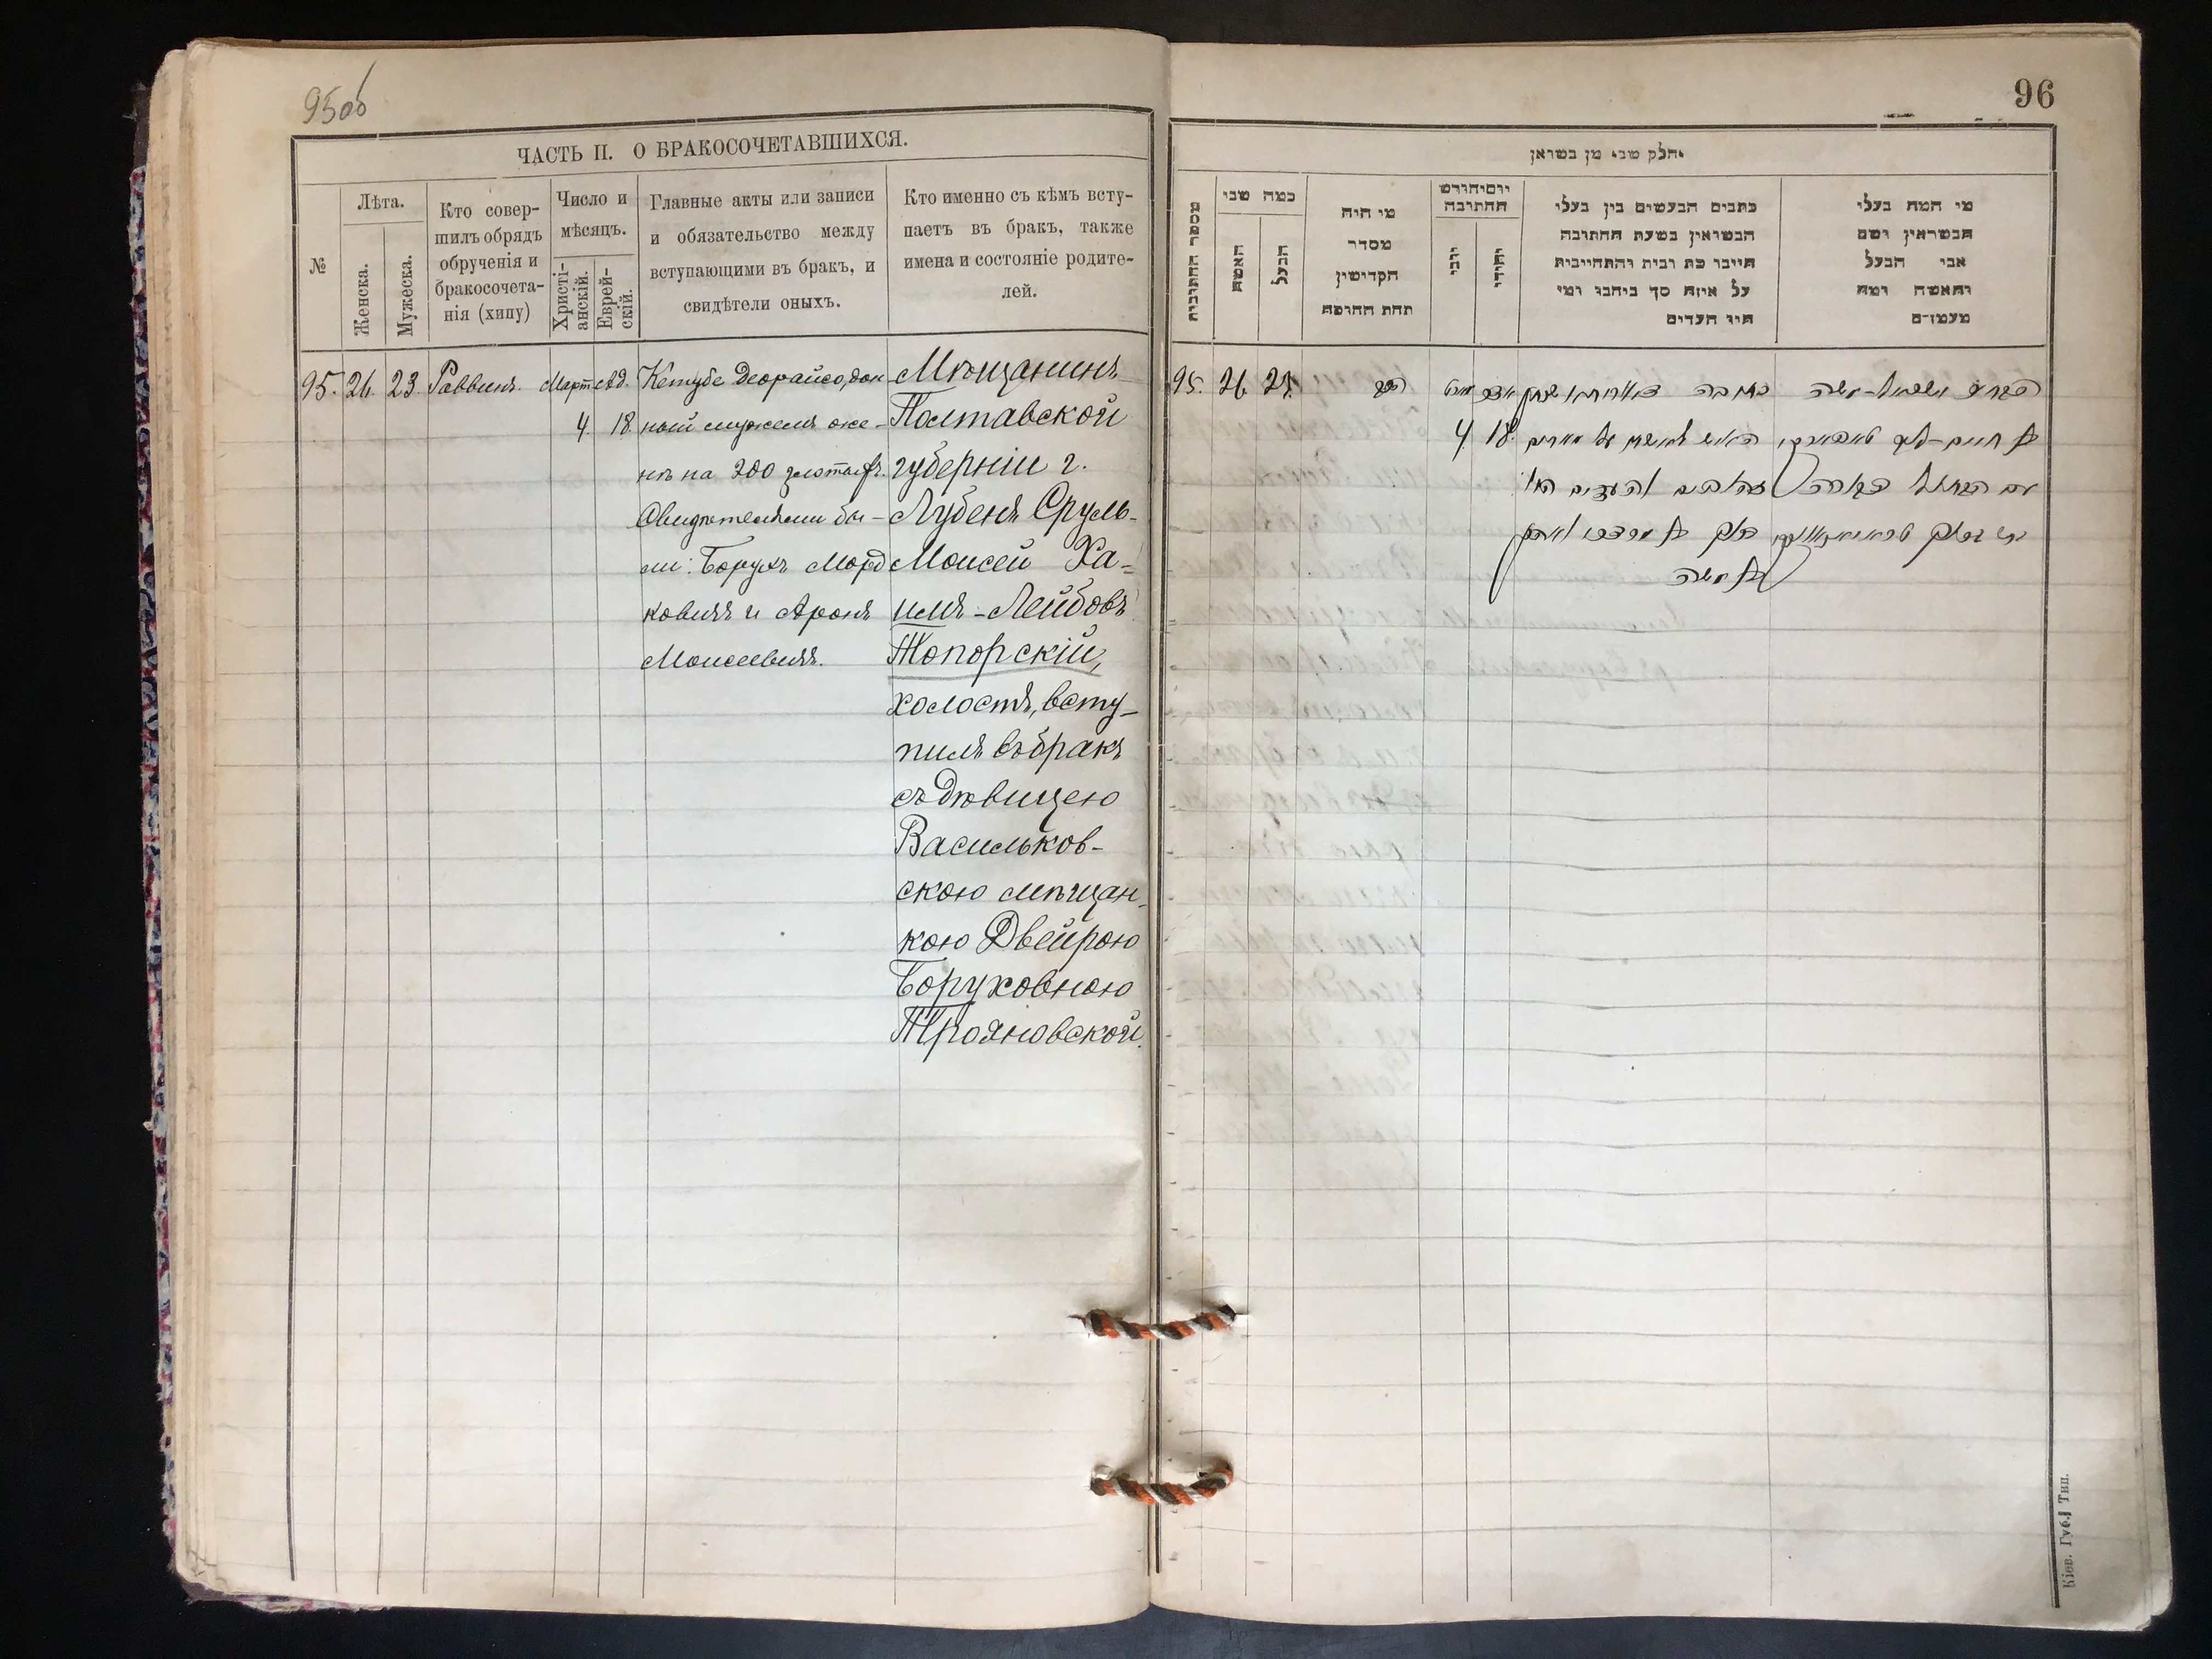 95об
ЧАСТЬ II. О БРАКОСОЧЕТАВШИХСЯ.
№
Лѣта.
Женска.
Мужеска.
Кто совер-
шилъ обрядъ
обрученія и
бракосочета-
нія (хипу)
Число и
мѣсяцъ.
Христі-
анскій.
Еврей-
скій.
Главные акты или записи
и обязательство между
вступающими въ бракъ, и
свидѣтели оныхъ.
Кто именно съ кѣмъ всту-
паетъ въ бракъ, также
имена и состояніе родите-
лей.
95. 26. 23. Раввинъ. Март. Ад.
4. 18.
Кетубе Деорайсо, дан
ный мужемъ же-
нѣ на 200 злотыхъ.
Свидѣтелями бы-
ли: Борухъ Морд
ковичъ и Аронъ
Моисеевичъ.
Мѣщанинъ
Полтавской
губерніи г.
Лубенъ Сруль-
Моисей Ха-
имъ-Лейбовъ
Топорскій,
холостъ, всту-
пилъ въ бракъ
съ дѣвицею
Васильков-
скою мѣщан-
кою Двейрою
Боруховною
Трояновской.
96
חלק שני מן נשואין
מספר החתונות
כמה שני
האשה
הבעל
מי היה
מסדר
הקדושין
תחת החופה
יום וחודש
החתונה
נוצרי
יהודי
כתבים הנעשים בין בעלי
הנשואין בשעת החתונה
היינו כת ובית והתחייבות
על איזה סך ביחבו ומי
היו העדים
מי המה בעלי
הנשואין ושם
אבי הבעל
והאשה ומה
מעמדם
95. 26. 23.
4. 18.
משה
Кіев. Губ. Тип.